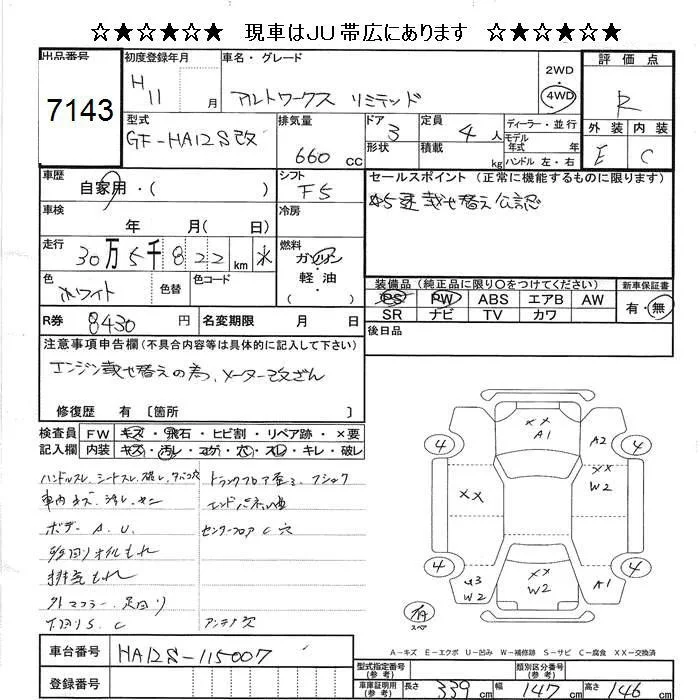 ☆★☆★☆☆ 現車はJU帯広にあります ☆★☆★☆☆
出品番号 初度登録年月 車名・グレード 2WD 評価点
7143 H11 月 アルトワークス リミテッド 4WD R
型式 排気量 ドア 定員 ディーラー・並行 外装 内装
GF-HA12S改 660 CC 3 4 人 モデル年式 年
形状 積載 kg ハンドル 左・右 E C
車歴 シフト セールスポイント (正常に機能するものに限ります)
自家用・( ) F5 5速 載せ替え公認
車検 冷房
年 月( 日)
走行 燃料
30万5千822 km ガソリン
軽油
色 色替 色コード ( )
ホワイト
装備品 (純正品に限り〇をつけてください) 新車保証書
PS PW ABS エアB AW 有・無
SR ナビ TV カワ
R券 8430 円 名変期限 月 日 後日品
注意事項申告欄(不具合内容等は具体的に記入して下さい)
エンジン載せ替えの為、メーター改ざん
修復歴 有 〔箇所 〕
検査員 FW キズ・飛石・ヒビ割・リペア跡・×要
記入欄 内装 キズ・汚レ・コゲ・穴・スレ・キレ・破レ
ハンドルスレ、シートスレ、
車内キズ、汚レ、
ボデー A.U.
オイルもれ
排気もれ
外マフラー、足回り
下回り S.C
エンドパネル
センターフロア C 穴
アンテナ穴
XX A1
4 A2 4
XX XX W2
4 U3 W2 XX W2 A1 4
有 スペア
A-キズ E-エクボ U-凹み W-補修跡 S-サビ C-腐食 XX-交換済
車台番号 HA12S-115007
登録番号
型式指定番号(参考) 類別区分番号(参考)
車庫証明用(参考) 長さ 339 cm 幅 147 cm 高さ 146 cm